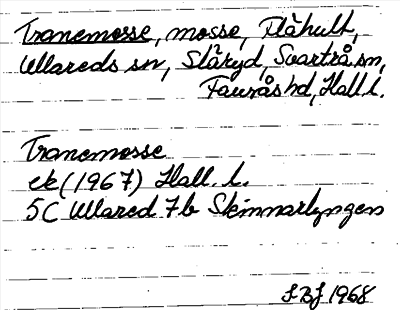 Tranemosse, mosse, Flåhult,
Ullareds sn, Slåryd, Svartrå sn,
Fauråshd, Hall l.
Tranemosse
ek (1967) Hall. l.
5C Ullared 7b Skinnarlyngen
SBJ 1968